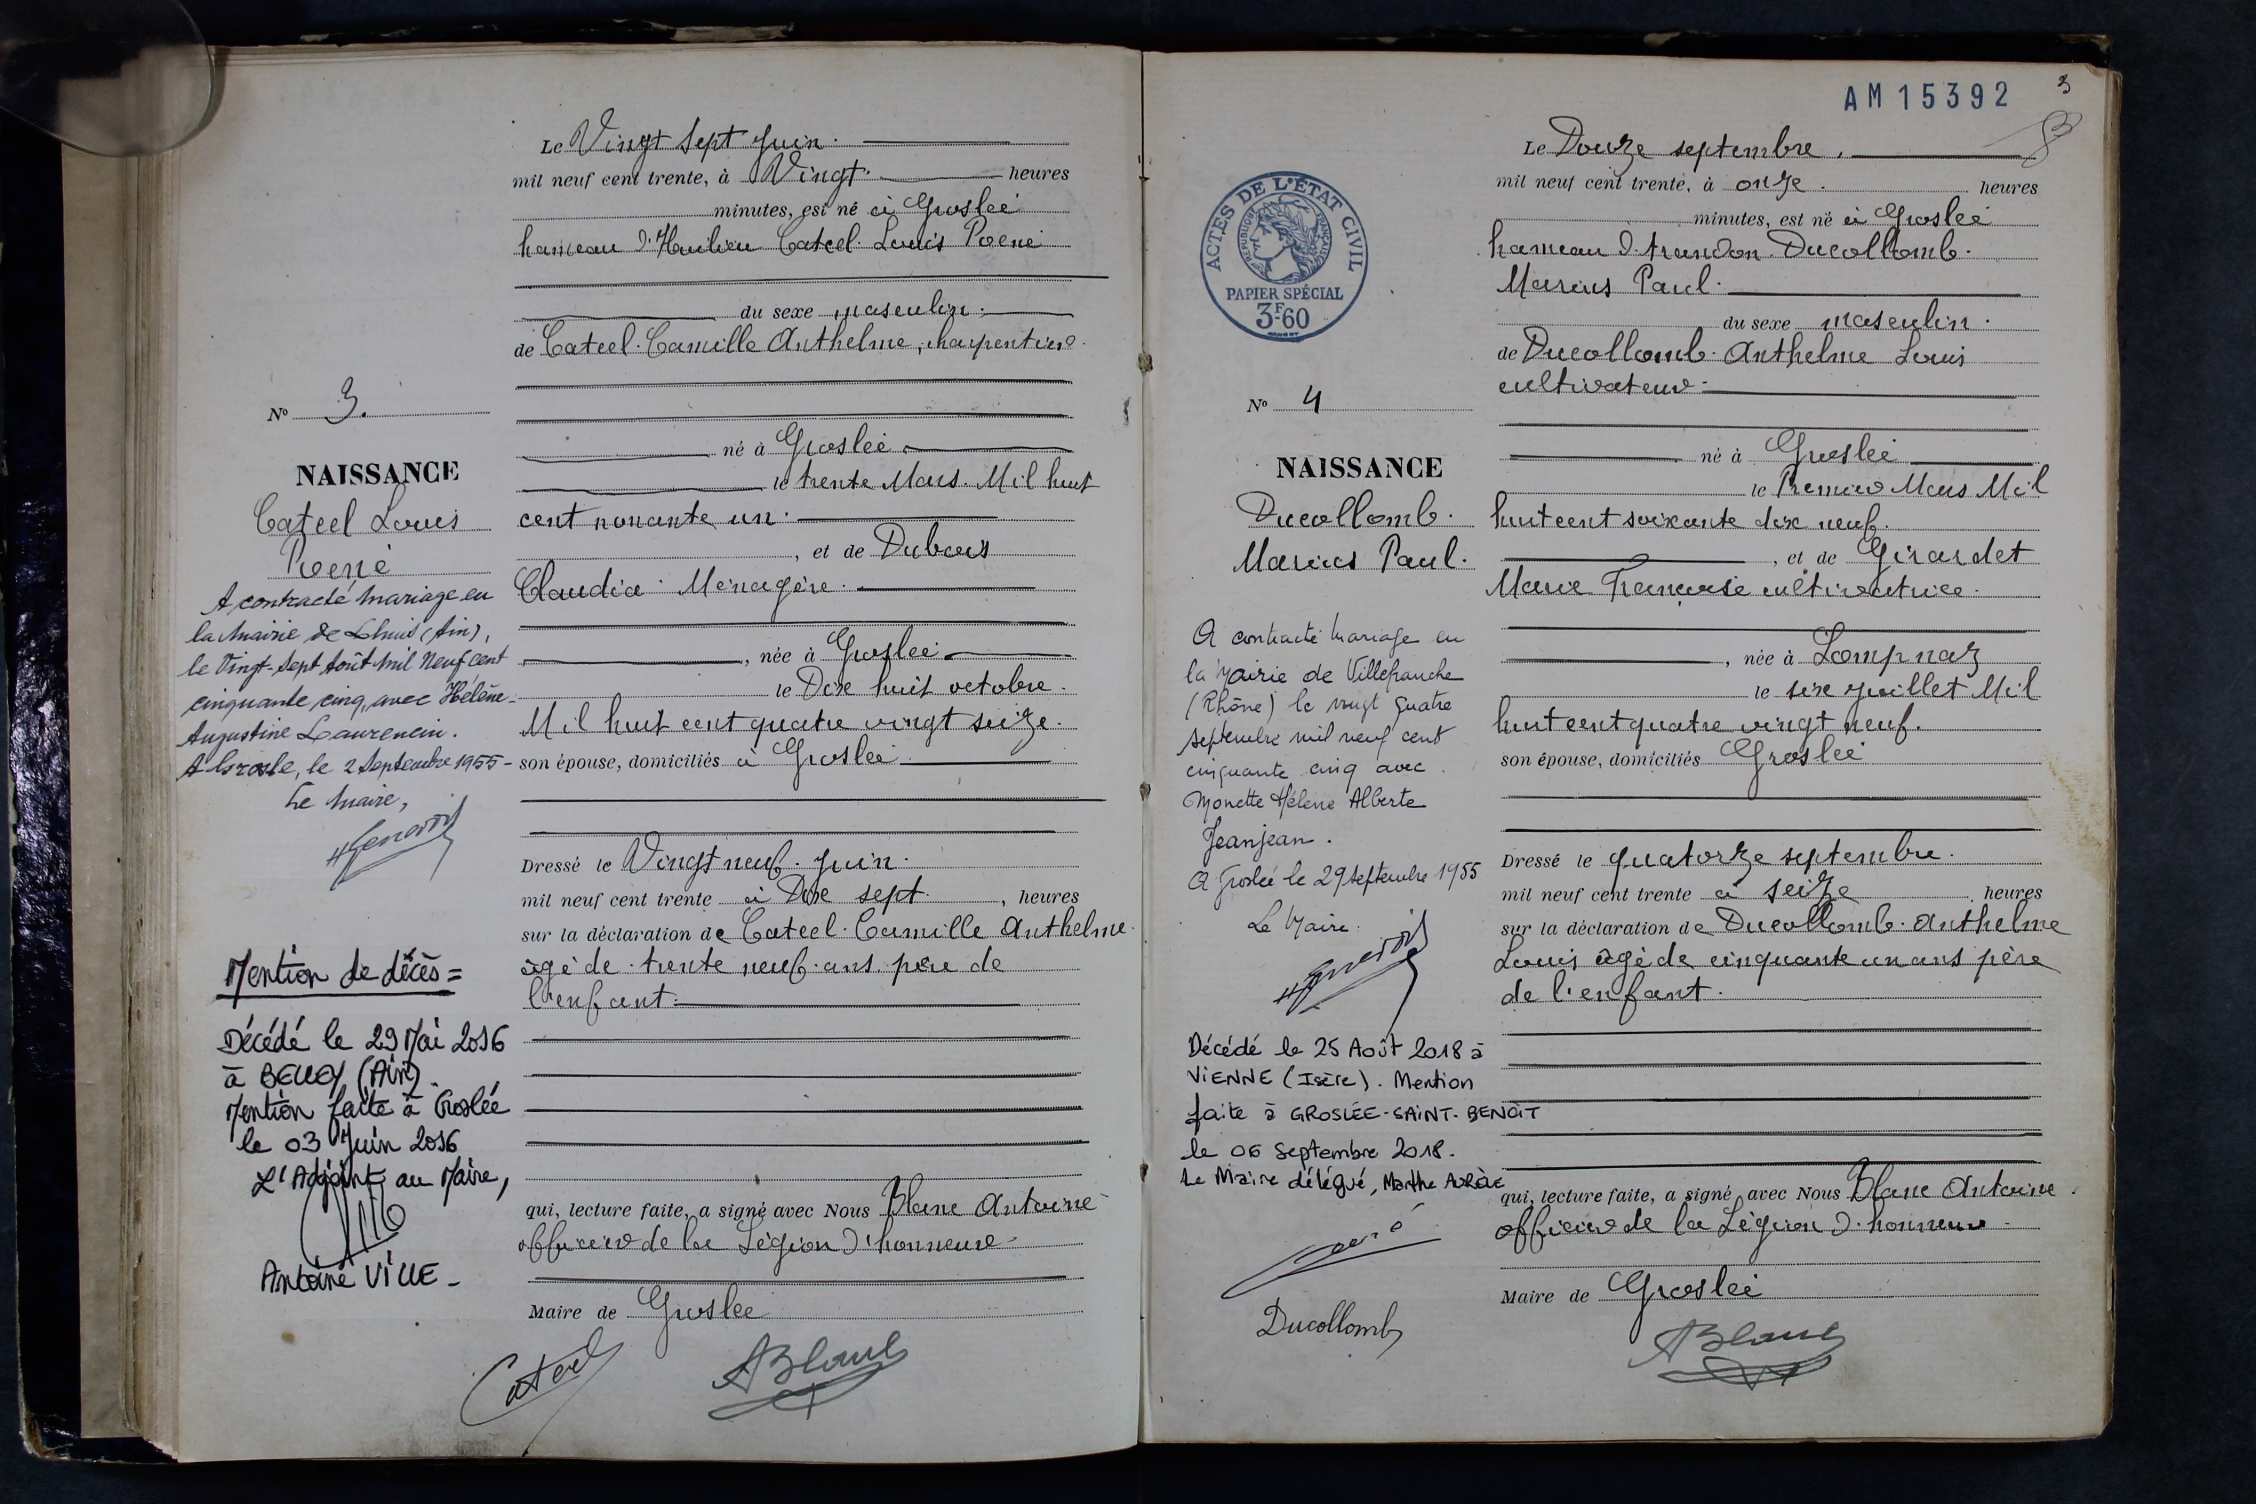 Le Vingt sept juin.
mil neuf cent trente, à Vingt. heures
minutes, est né à Groslée
hameau d'Haulieu Cateel Louis René
du sexe masculin.
de Cateel Camille Anthelme, charpentier
N° 3.
né à Groslée
NAISSANCE
le trente Mars Mil huit
Cateel Louis
René
cent nonante un.
, et de Dubous
Claudia Ménagère.
, née à Groslée
le Dix huit octobre.
Mil huit cent quatre vingt seize.
son épouse, domiciliés à Groslée
A contracté mariage en
la Mairie de Lhuis (Ain),
le Vingt-sept Août Mil Neuf cent
cinquante cinq, avec Hélène
Augustine Laurencin.
A Groslée, le 2 Septembre 1955-
Le Maire,
Dressé le Vingt neuf. juin.
mil neuf cent trente à Dix sept , heures
sur la déclaration de Cateel. Camille Anthelme.
âgé de trente neuf ans père de
l'enfant.
Mention de décès =
Décédé le 29 Mai 2016
à BELLEY (Ain).
Mention faite à Groslée
le 03 Juin 2016
L'Adjoint au Maire,
Antoine VILLE -
qui, lecture faite, a signé avec Nous Blanc Antoine
officier de la Légion d'honneur
Maire de Groslée
Cateel
ABlanc
AM15392
3
Le Douze septembre.
mil neuf cent trente, à onze. heures
minutes, est né à Groslée
hameau d. Ducollomb.
Marius Paul.
ACTES DE L'ÉTAT CIVIL
RÉPUBLIQUE FRANÇAISE
PAPIER SPÉCIAL
3F-60
du sexe masculin.
de Ducollomb. Anthelme Louis
cultivateur
N° 4
né à Groslée
NAISSANCE
le Premier Mars Mil
Ducollomb.
Marius Paul.
huit cent soixante dix neuf.
, et de Girardet
Marie Françoise cultivatrice.
, née à Lompnaz
le six juillet Mil
huit cent quatre vingt neuf.
son épouse, domiciliés Groslée
A contracté mariage en
la Mairie de Villefranche
(Rhône) le vingt quatre
septembre mil neuf cent
cinquante cinq avec
Monette Hélène Alberte
Jeanjean.
A Groslée le 29 septembre 1955
Le Maire.
Dressé le quatorze septembre.
mil neuf cent trente à seize heures
sur la déclaration de Ducollomb. Anthelme
Louis âgé de cinquante un ans père
de l'enfant.
Décédé le 25 Août 2018 à
VIENNE (Isère). Mention
faite à GROSLÉE-SAINT-BENOIT
le 06 Septembre 2018.
Le Maire délégué, Marthe
qui, lecture faite, a signé avec Nous Blanc Antoine.
officier de la Légion d'honneur
Maire de Groslée
Ducollomb
ABlanc